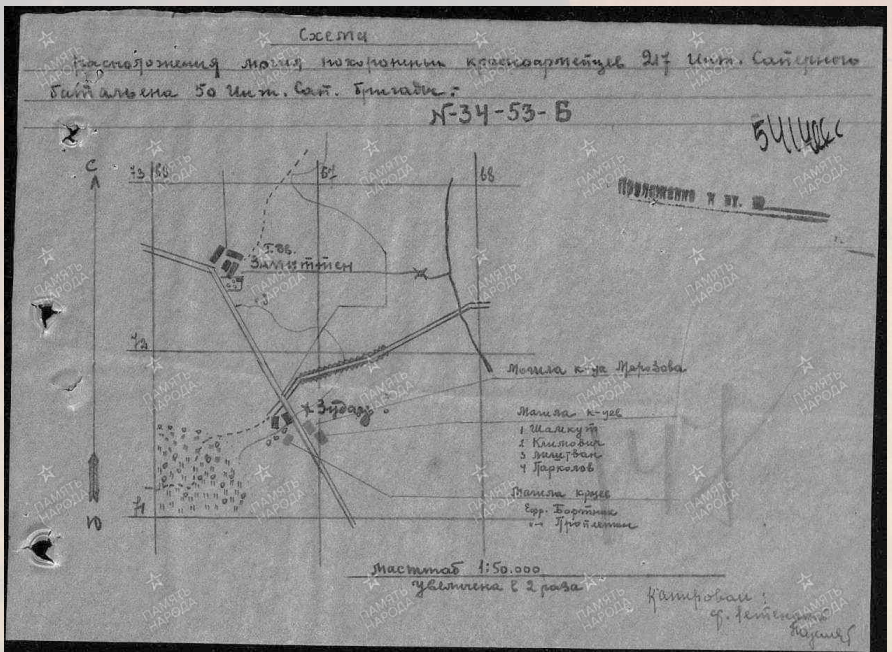 Схема
расположения могил похороненых красноармейцев 217 Инж. Саперного
батальена 50 Инж. Сап. бригады:
N-34-53-Б
Приложение к вх. №
С
73 66
67
68
г.дв.
72
Могила к-ца Морозова
Могила к-цев
1 Шамкут
2 Климович
3
4 Парколов
Могила кр-цев
Ефр. Бортник
71
Ю
Масштаб 1:50.000
Увеличена в 2 раза
Копировал:
ПАМЯТЬ НАРОДА